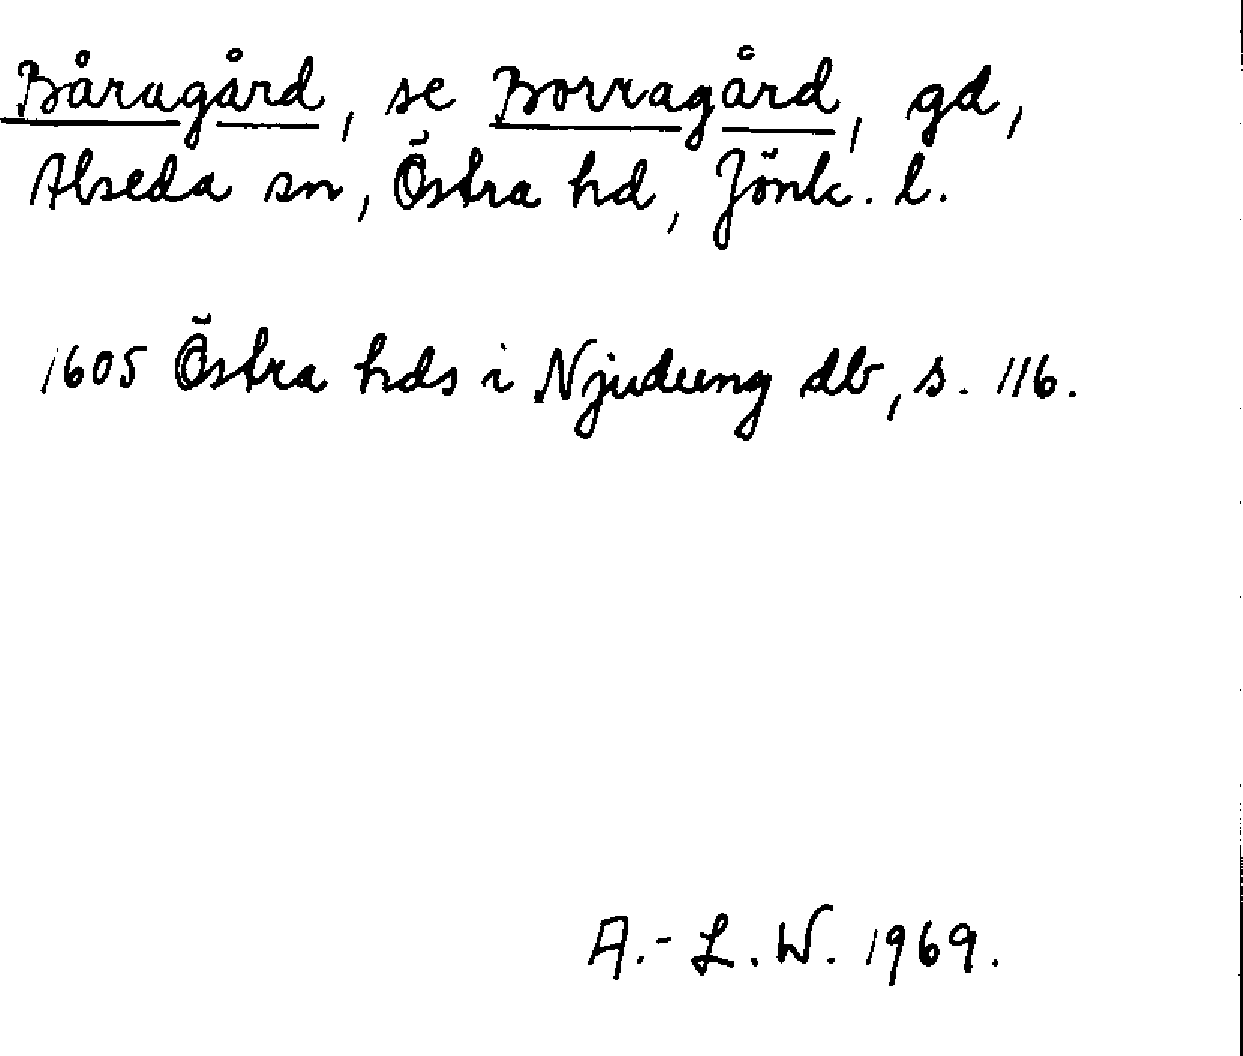 Båragård, se Borragård, gd,
Alseda sn, Östra hd, Jönk. l.
1605 Östra hds i Njudung db, s. 116.
A.-L.W. 1969.